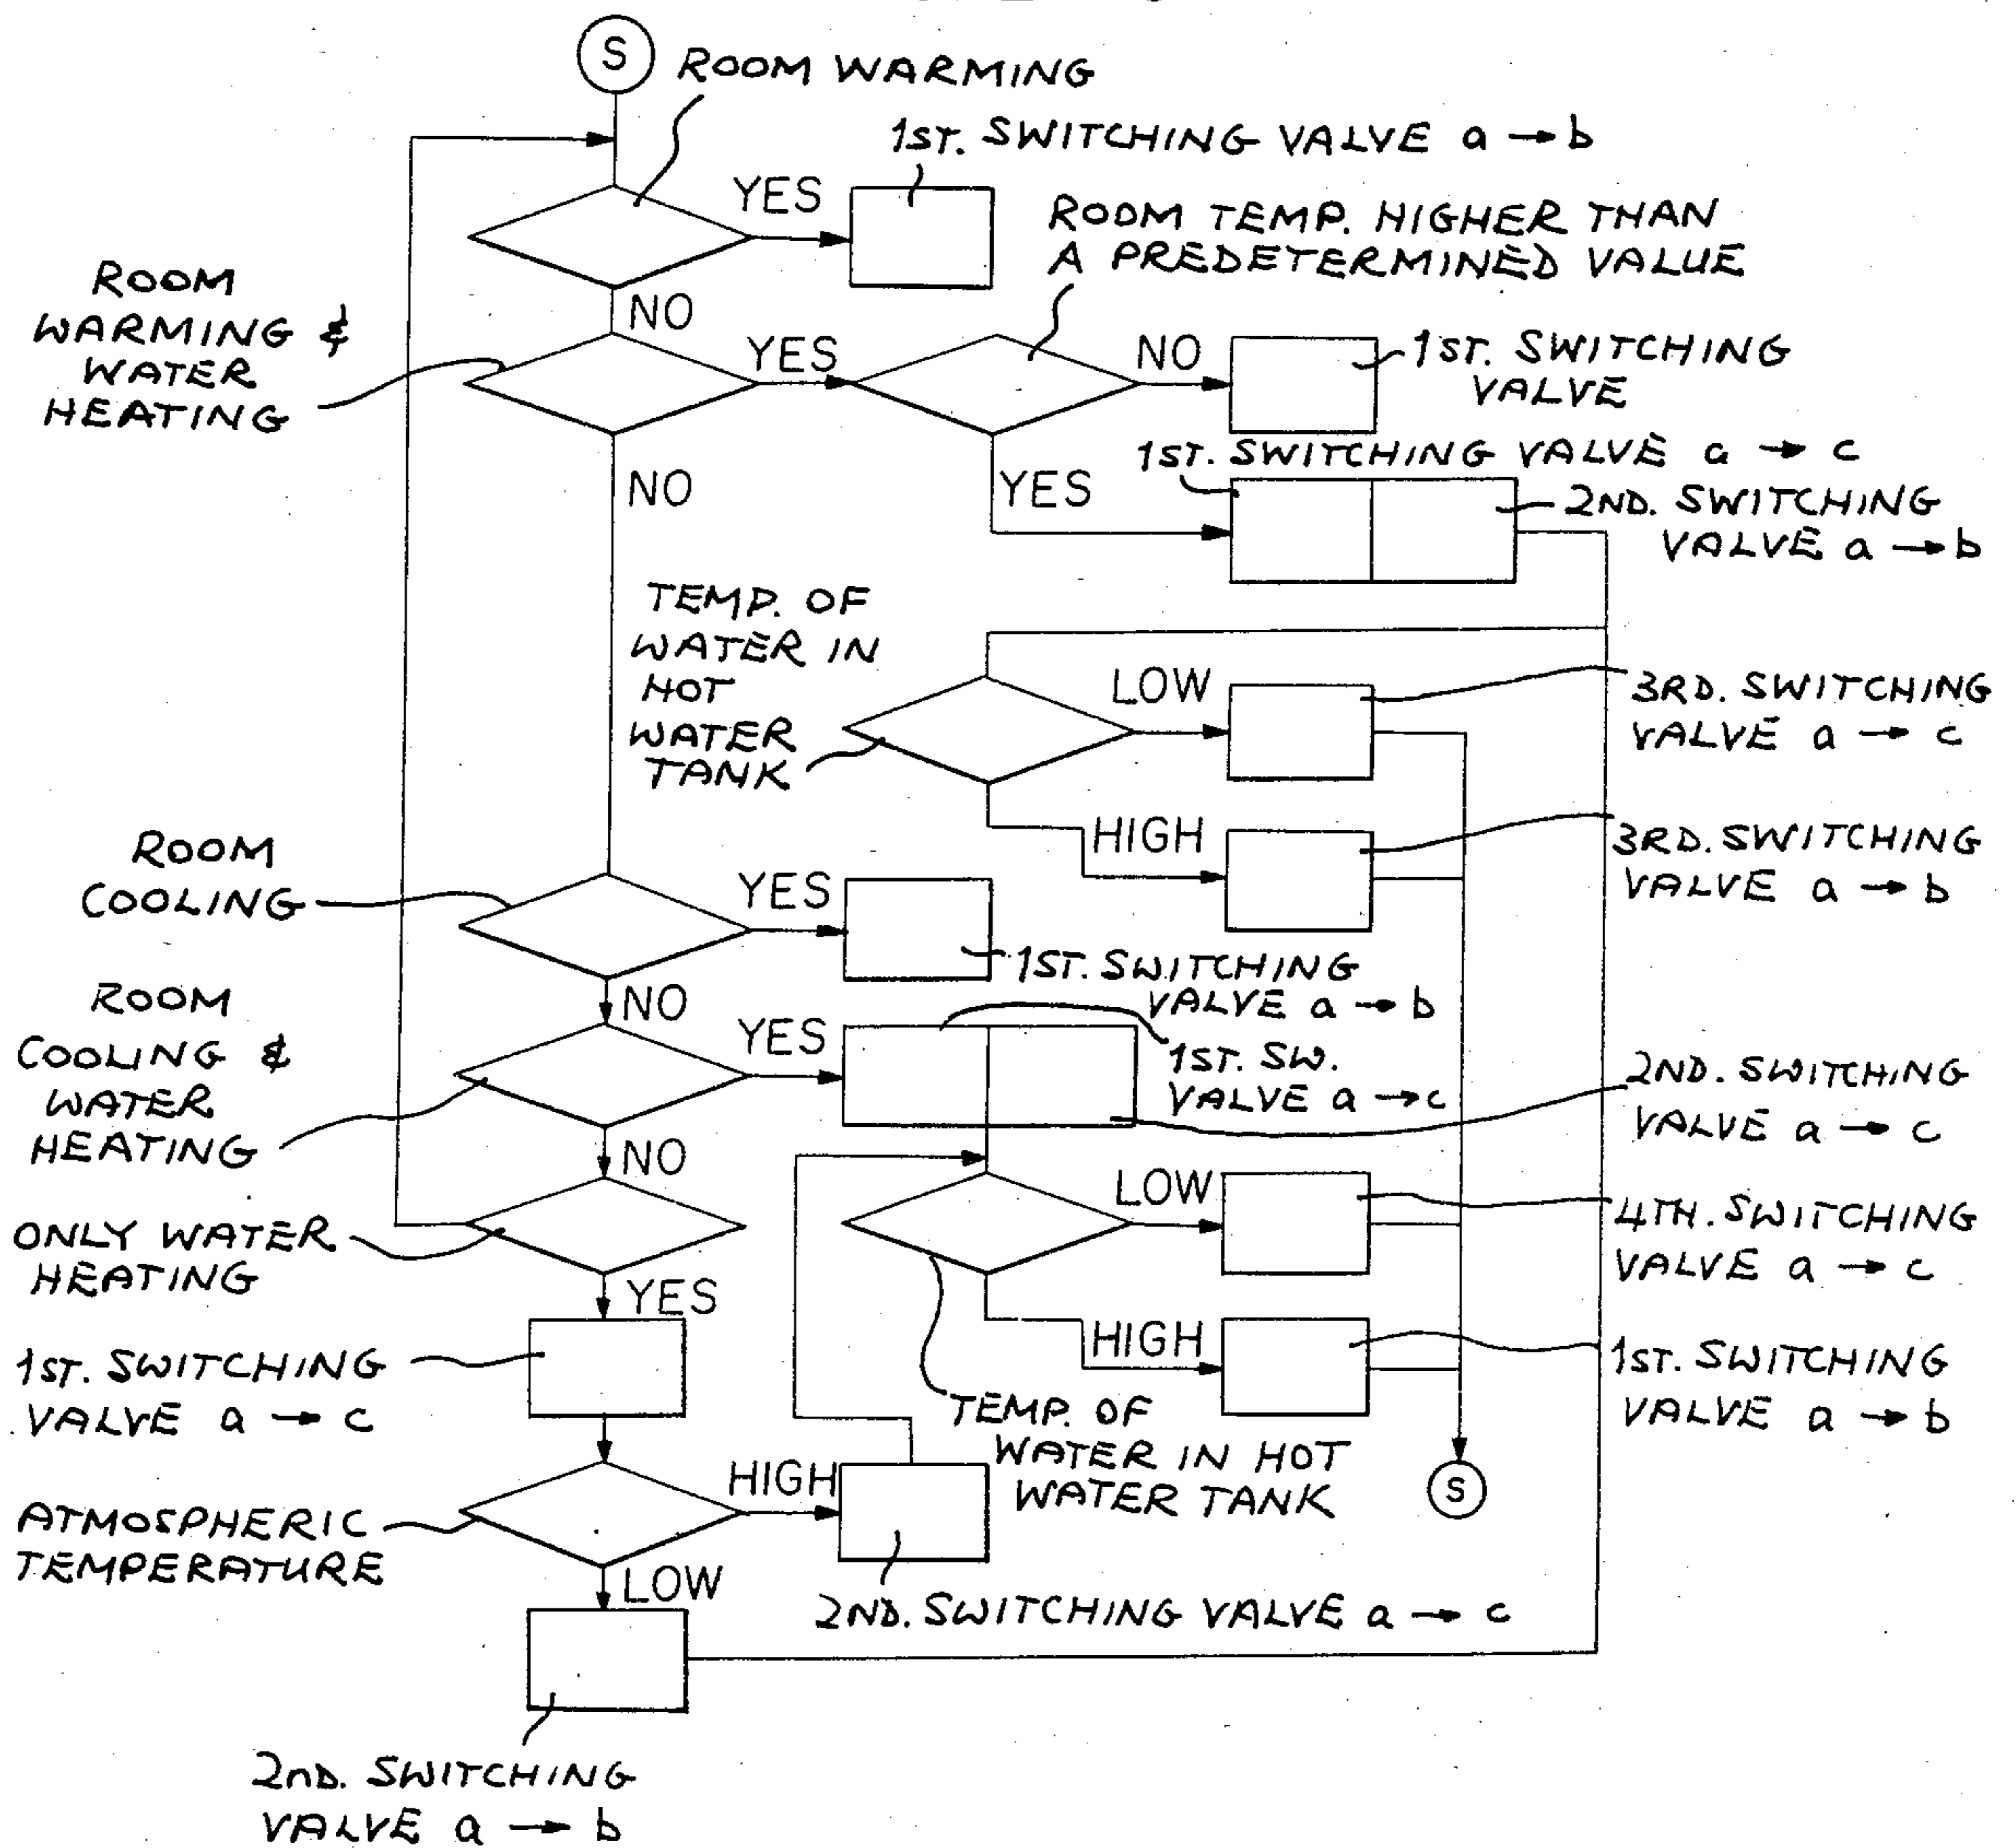 S
ROOM WARMING
1ST. SWITCHING VALVE a → b
YES
ROOM TEMP. HIGHER THAN
A PREDETERMINED VALUE
NO
ROOM
WARMING &
WATER
HEATING
YES
NO
1ST. SWITCHING
VALVE
NO
YES
1ST. SWITCHING VALVE a → c
2ND. SWITCHING
VALVE a → b
TEMP. OF
WATER IN
HOT
WATER
TANK
LOW
3RD. SWITCHING
VALVE a → c
HIGH
3RD. SWITCHING
VALVE a → b
ROOM
COOLING
YES
1ST. SWITCHING
VALVE a → b
NO
ROOM
COOLING &
WATER
HEATING
YES
1ST. SW.
VALVE a → c
2ND. SWITCHING
VALVE a → c
NO
LOW
4TH. SWITCHING
VALVE a → c
ONLY WATER
HEATING
YES
HIGH
1ST. SWITCHING
VALVE a → b
1ST. SWITCHING
VALVE a → c
TEMP. OF
WATER IN HOT
WATER TANK
S
HIGH
ATMOSPHERIC
TEMPERATURE
LOW
2ND. SWITCHING VALVE a → c
2nD. SWITCHING
VALVE a → b